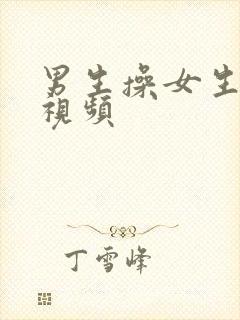 男生操女生
視頻
丁雪峰